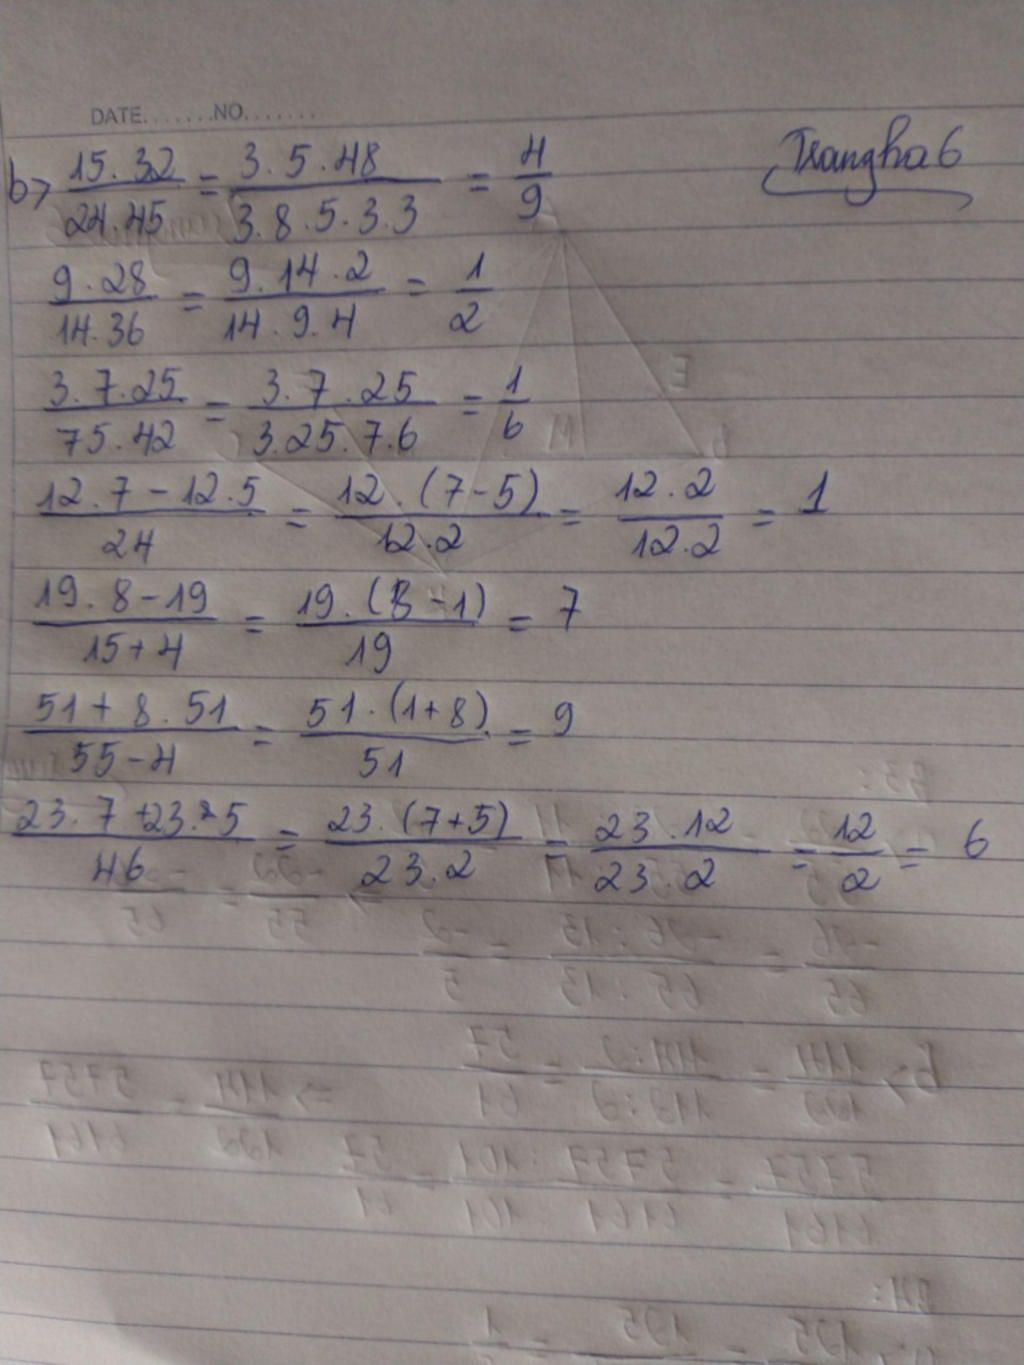 DATE.......NO.......
Trangha6
b> 15.32/24.45 = 3.5.48/3.8.5.3.3 = 4/9
9.28/14.36 = 9.14.2/14.9.4 = 1/2
3.7.25/75.42 = 3.7.25/3.25.7.6 = 1/6
12.7-12.5/24 = 12.(7-5)/12.2 = 12.2/12.2 = 1
19.8-19/15+4 = 19.(8-1)/19 = 7
51+8.51/55-4 = 51.(1+8)/51 = 9
23.7+23.5/46 = 23.(7+5)/23.2 = 23.12/23.2 = 12/2 = 6